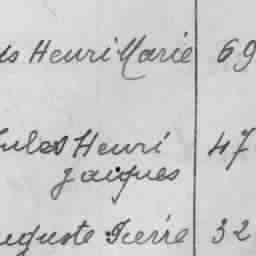 Henri Marie 69
Jules Henri 47
Jacques
Auguste Pierre 32